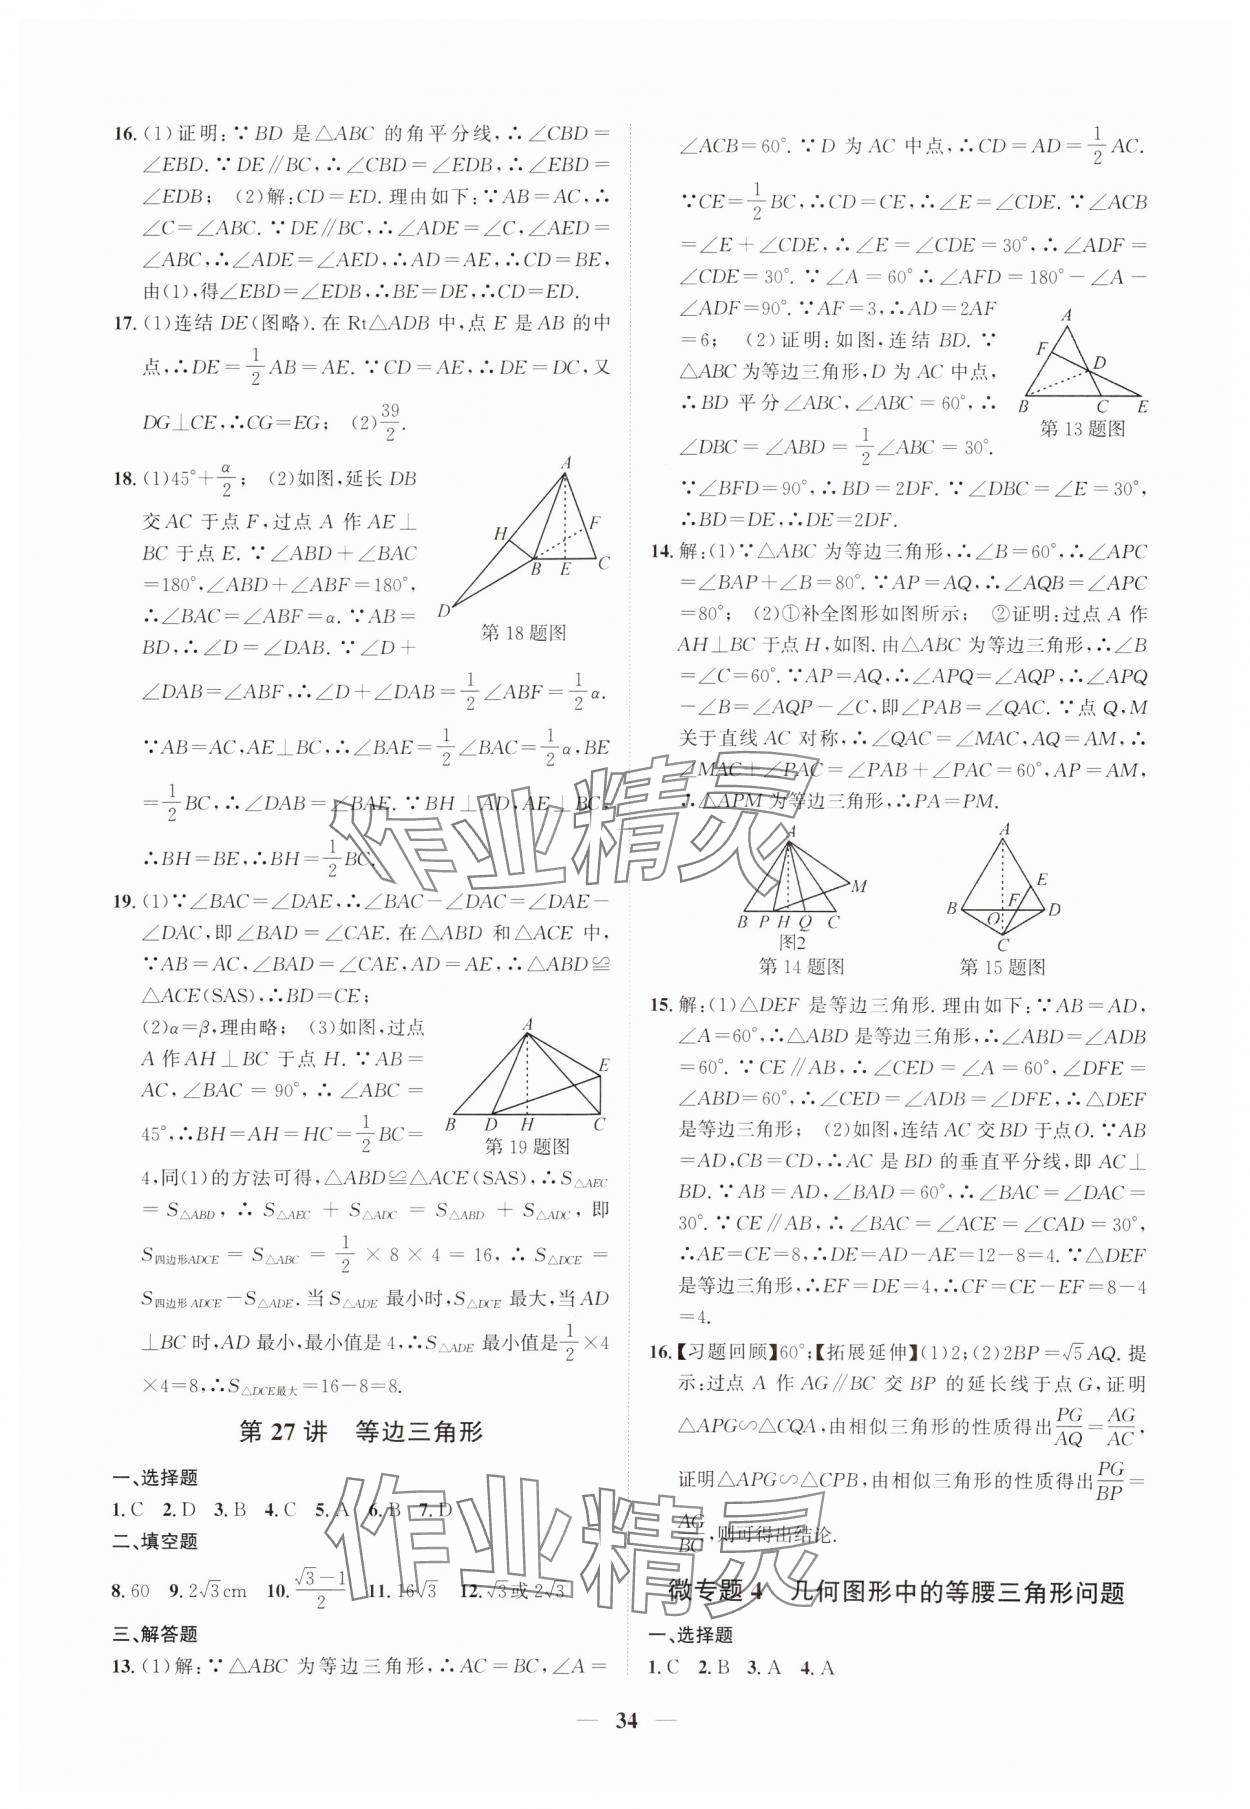 16. (1)证明:∵BD 是△ABC 的角平分线,∴∠CBD=
∠EBD. ∵DE∥BC,∴∠CBD=∠EDB,∴∠EBD=
∠EDB; (2)解:CD=ED. 理由如下:∵AB=AC,∴
∠C=∠ABC. ∵DE∥BC,∴∠ADE=∠C,∠AED=
∠ABC,∴∠ADE=∠AED,∴AD=AE,∴CD=BE,
由(1),得∠EBD=∠EDB,∴BE=DE,∴CD=ED.
17. (1)连结 DE(图略). 在 Rt△ADB 中,点 E 是 AB 的中
点,∴DE=1/2 AB=AE. ∵CD=AE,∴DE=DC,又
DG⊥CE,∴CG=EG; (2)39/2.
18. (1)45°+α/2; (2)如图,延长 DB
交 AC 于点 F,过点 A 作 AE⊥
BC 于点 E. ∵∠ABD+∠BAC
=180°,∠ABD+∠ABF=180°,
∴∠BAC=∠ABF=α. ∵AB=
BD,∴∠D=∠DAB. ∵∠D+
∠DAB=∠ABF,∴∠D+∠DAB=1/2∠ABF=1/2α.
∵AB=AC,AE⊥BC,∴∠BAE=1/2∠BAC=1/2α,BE
=1/2BC,∴∠DAB=∠BAE. ∵BH⊥AD,AE⊥BC,
∴BH=BE,∴BH=1/2BC.
A
H
F
B E C
D
第 18 题图
19. (1)∵∠BAC=∠DAE,∴∠BAC-∠DAC=∠DAE-
∠DAC,即∠BAD=∠CAE. 在△ABD 和△ACE 中,
∵AB=AC,∠BAD=∠CAE,AD=AE,∴△ABD≌
△ACE(SAS),∴BD=CE;
(2)α=β,理由略; (3)如图,过点
A 作 AH⊥BC 于点 H. ∵AB=
AC,∠BAC=90°,∴∠ABC=
45°,∴BH=AH=HC=1/2BC=
A
E
B D H C
第 19 题图
4,同(1)的方法可得,△ABD≌△ACE(SAS),∴S△AEC
=S△ABD,∴S△AEC+S△ADC=S△ABD+S△ADC,即
S四边形ADCE=S△ABC=1/2×8×4=16,∴S△DCE=
S四边形ADCE-S△ADE. 当 S△ADE 最小时,S△DCE 最大,当 AD
⊥BC 时,AD 最小,最小值是 4,∴S△ADE 最小值是1/2×4
×4=8,∴S△DCE最大=16-8=8.
第 27 讲 等边三角形
一、选择题
1. C 2. D 3. B 4. C 5. A 6. B 7. D
二、填空题
8. 60 9. 2√3cm 10. (√3-1)/2 11. 16√3 12. √3或 2√3
三、解答题
13. (1)解:∵△ABC 为等边三角形,∴AC=BC,∠A=
∠ACB=60°. ∵D 为 AC 中点,∴CD=AD=1/2AC.
∵CE=1/2BC,∴CD=CE,∴∠E=∠CDE. ∵∠ACB
=∠E+∠CDE,∴∠E=∠CDE=30°,∴∠ADF=
∠CDE=30°. ∵∠A=60°∴∠AFD=180°-∠A-
∠ADF=90°. ∵AF=3,∴AD=2AF
=6; (2)证明:如图,连结 BD. ∵
△ABC 为等边三角形,D 为 AC 中点,
∴BD 平分∠ABC,∠ABC=60°,∴
∠DBC=∠ABD=1/2∠ABC=30°.
∵∠BFD=90°,∴BD=2DF. ∵∠DBC=∠E=30°,
∴BD=DE,∴DE=2DF.
A
F
D
B C E
第 13 题图
14. 解:(1)∵△ABC 为等边三角形,∴∠B=60°,∴∠APC
=∠BAP+∠B=80°. ∵AP=AQ,∴∠AQB=∠APC
=80°; (2)①补全图形如图所示; ②证明:过点 A 作
AH⊥BC 于点 H,如图. 由△ABC 为等边三角形,∴∠B
=∠C=60°. ∵AP=AQ,∴∠APQ=∠AQP,∴∠APQ
-∠B=∠AQP-∠C,即∠PAB=∠QAC. ∵点 Q,M
关于直线 AC 对称,∴∠QAC=∠MAC,AQ=AM,∴
∠MAC+∠PAC=∠PAB+∠PAC=60°,AP=AM,
∴△APM 为等边三角形,∴PA=PM.
A
M
B P H Q C
图2
第 14 题图
A
E
B O F D
C
第 15 题图
15. 解:(1)△DEF 是等边三角形. 理由如下:∵AB=AD,
∠A=60°,∴△ABD 是等边三角形,∴∠ABD=∠ADB
=60°. ∵CE∥AB,∴∠CED=∠A=60°,∠DFE=
∠ABD=60°,∴∠CED=∠ADB=∠DFE,∴△DEF
是等边三角形; (2)如图,连结 AC 交 BD 于点O. ∵AB
=AD,CB=CD,∴AC 是 BD 的垂直平分线,即 AC⊥
BD. ∵AB=AD,∠BAD=60°,∴∠BAC=∠DAC=
30°. ∵CE∥AB,∴∠BAC=∠ACE=∠CAD=30°,
∴AE=CE=8,∴DE=AD-AE=12-8=4. ∵△DEF
是等边三角形,∴EF=DE=4,∴CF=CE-EF=8-4
=4.
16. 【习题回顾】60°;【拓展延伸】(1)2;(2)2BP=√5AQ. 提
示:过点 A 作 AG∥BC 交 BP 的延长线于点 G,证明
△APG∽△CQA,由相似三角形的性质得出PG/AQ=AG/AC,
证明△APG∽△CPB,由相似三角形的性质得出PG/BP=
AG/BC,则可得出结论.
微专题 4 几何图形中的等腰三角形问题
一、选择题
1. C 2. B 3. A 4. A
作业精灵
作业精灵
— 34 —